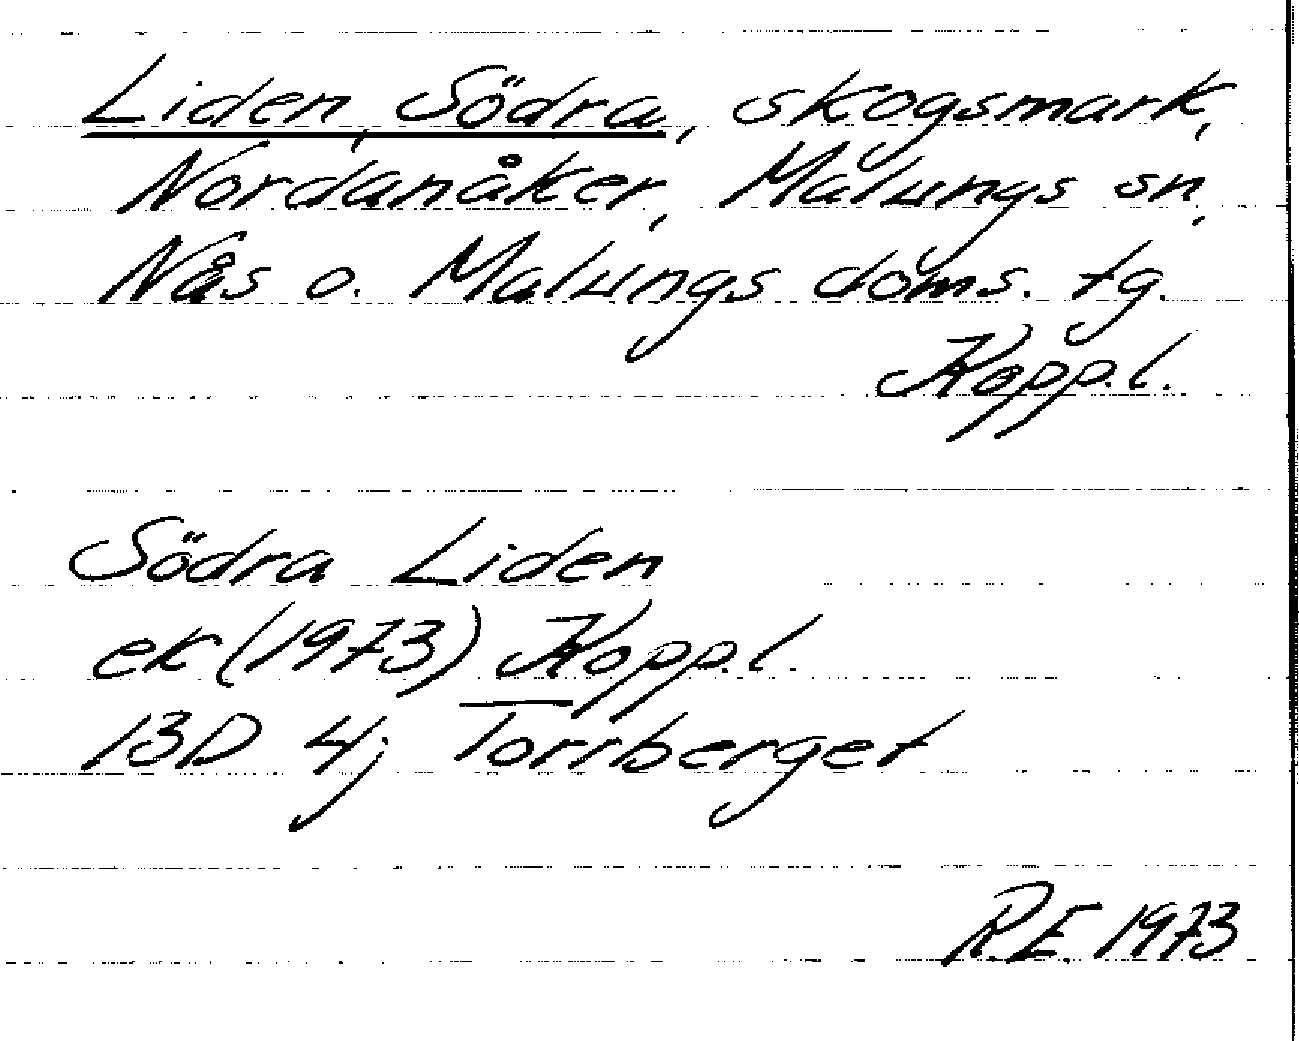 Liden, Södra, skogsmark,
Nordanåker, Malungs sn,
Nås o. Malungs doms. tg.
Kopp.l.
Södra Liden
ek (1973) Kopp.l.
13D 4j Torrberget
R.E. 1973